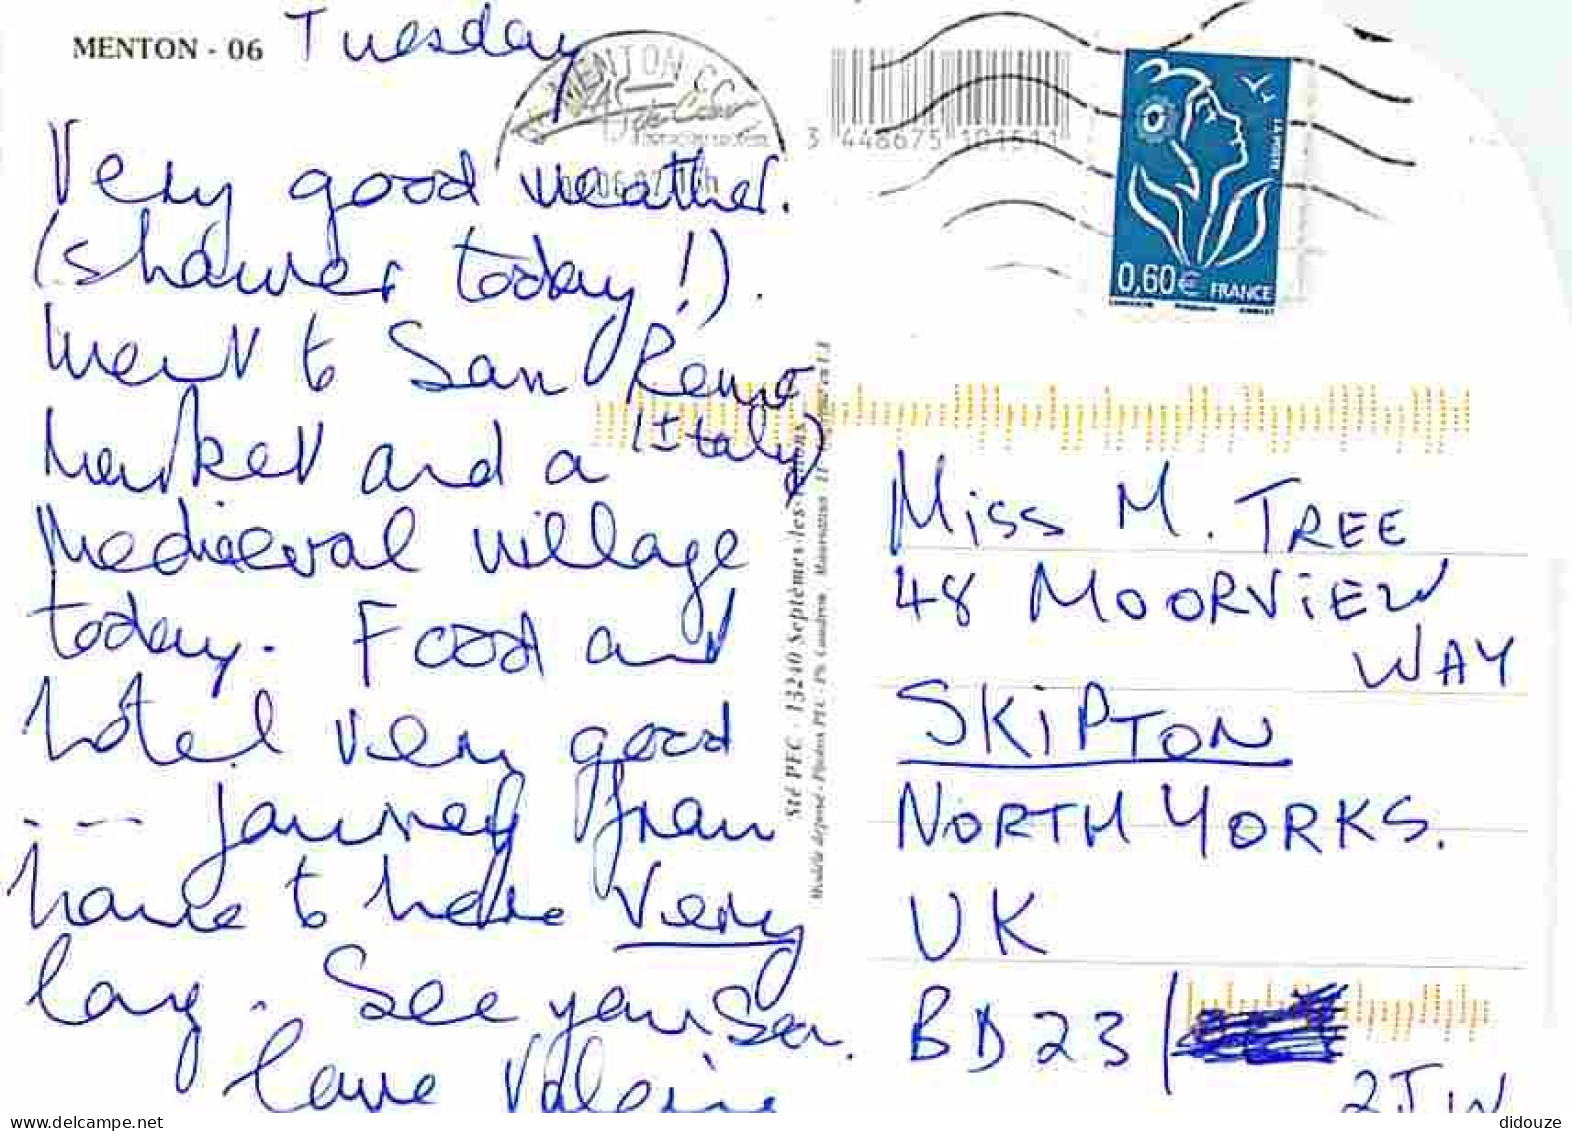 MENTON - 06
Tuesday
Very good weather.
(shower today!).
Went to San Remo
Market and a (Italy)
Mediaeval village
today. Food and
hotel very good
--- journey from
home to here Very
long. See you soon.
Love Valerie
MENTON CC
3 446675 101611
LA POSTE
0,60€ FRANCE
Sté PEC - 13240 Septèmes-les-Vallons
Miss M. TREE
48 MOORVIEW
WAY
SKIPTON
NORTH YORKS.
UK
BD23 /
2JW
didouze